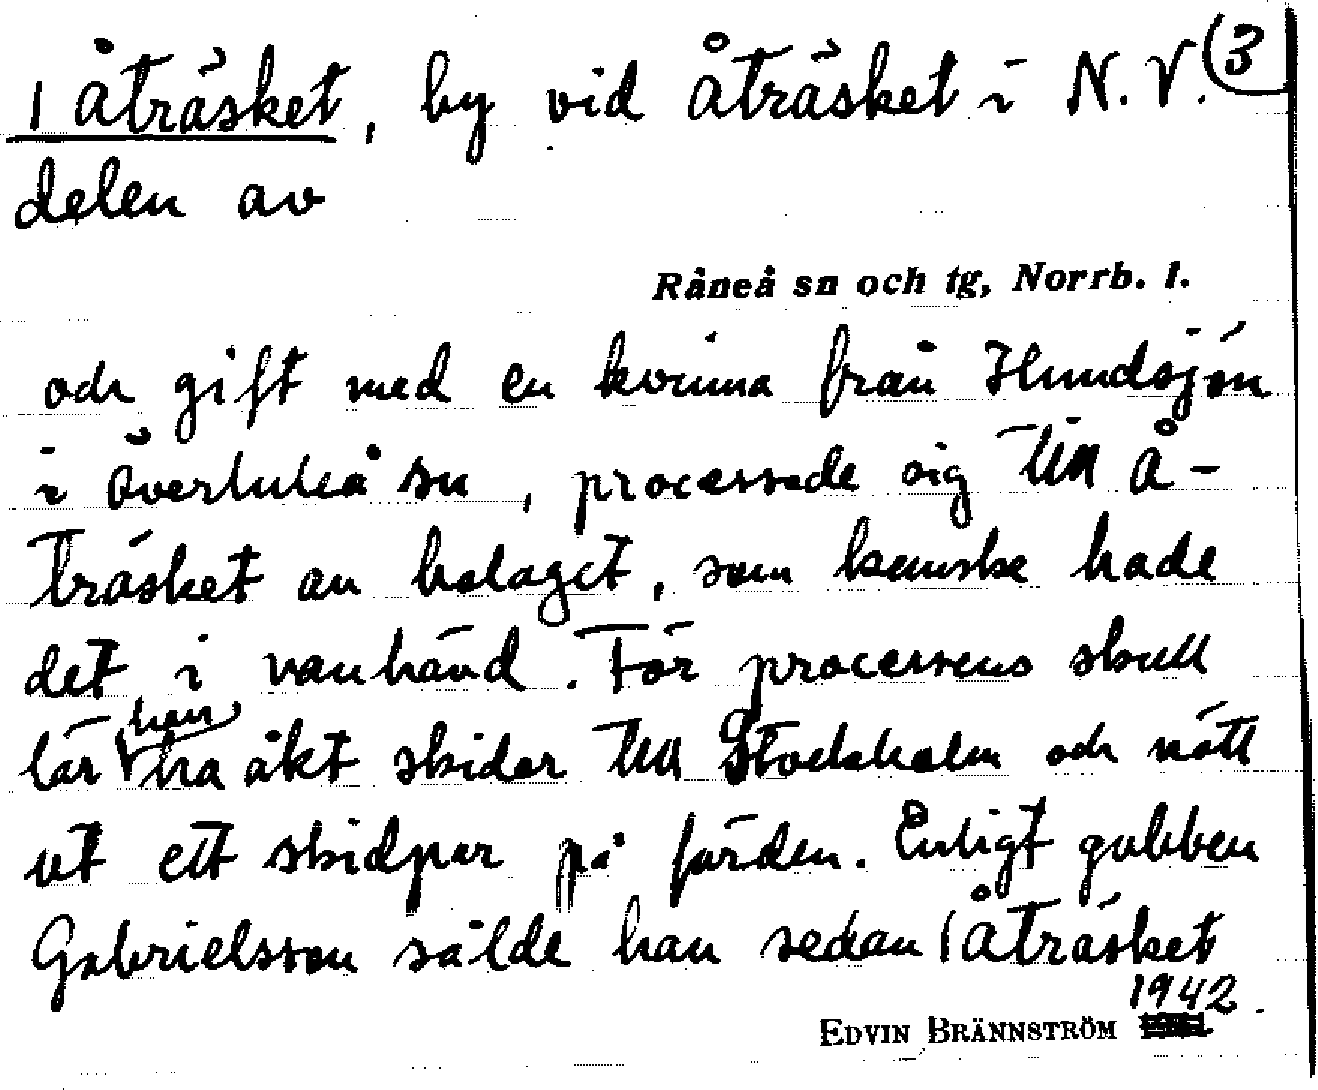 1 Åträsket, by vid Åträsket i N.V. (3
delen av
Råneå sn och tg, Norrb. l.
och gift med en kvinna från Hundsjön
i Överluleå sn, processade sig till Å-
träsket av bolaget, som kanske hade
det i vanhävd. För processens skull
lär han ha åkt skidor till Stockholm och nött
ut ett skidpar på färden. Enligt gubben
Gabrielsson sålde han sedan 1 Åträsket
1942
EDVIN BRÄNNSTRÖM